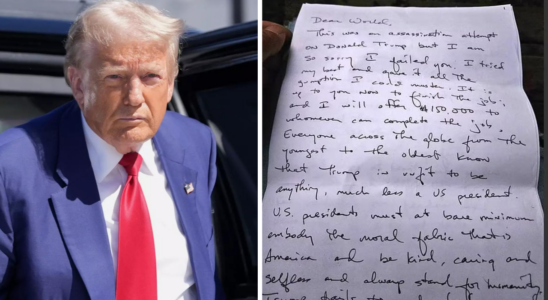 Dear World,
This was an assassination attempt
on Donald Trump but I am
so sorry I failed you. I tried
my best and gave it all the
gumption I could muster. It is
up to you now to finish the job;
and I will offer $150,000 to
whomever can complete the job.
Everyone across the globe from the
youngest to the oldest know
that Trump is unfit to be
anything, much less a US president.
U.S. presidents must at bare minimum
embody the moral fabric that is
America and be kind, caring and
selfless and always stand for humanity.
Trump fails to